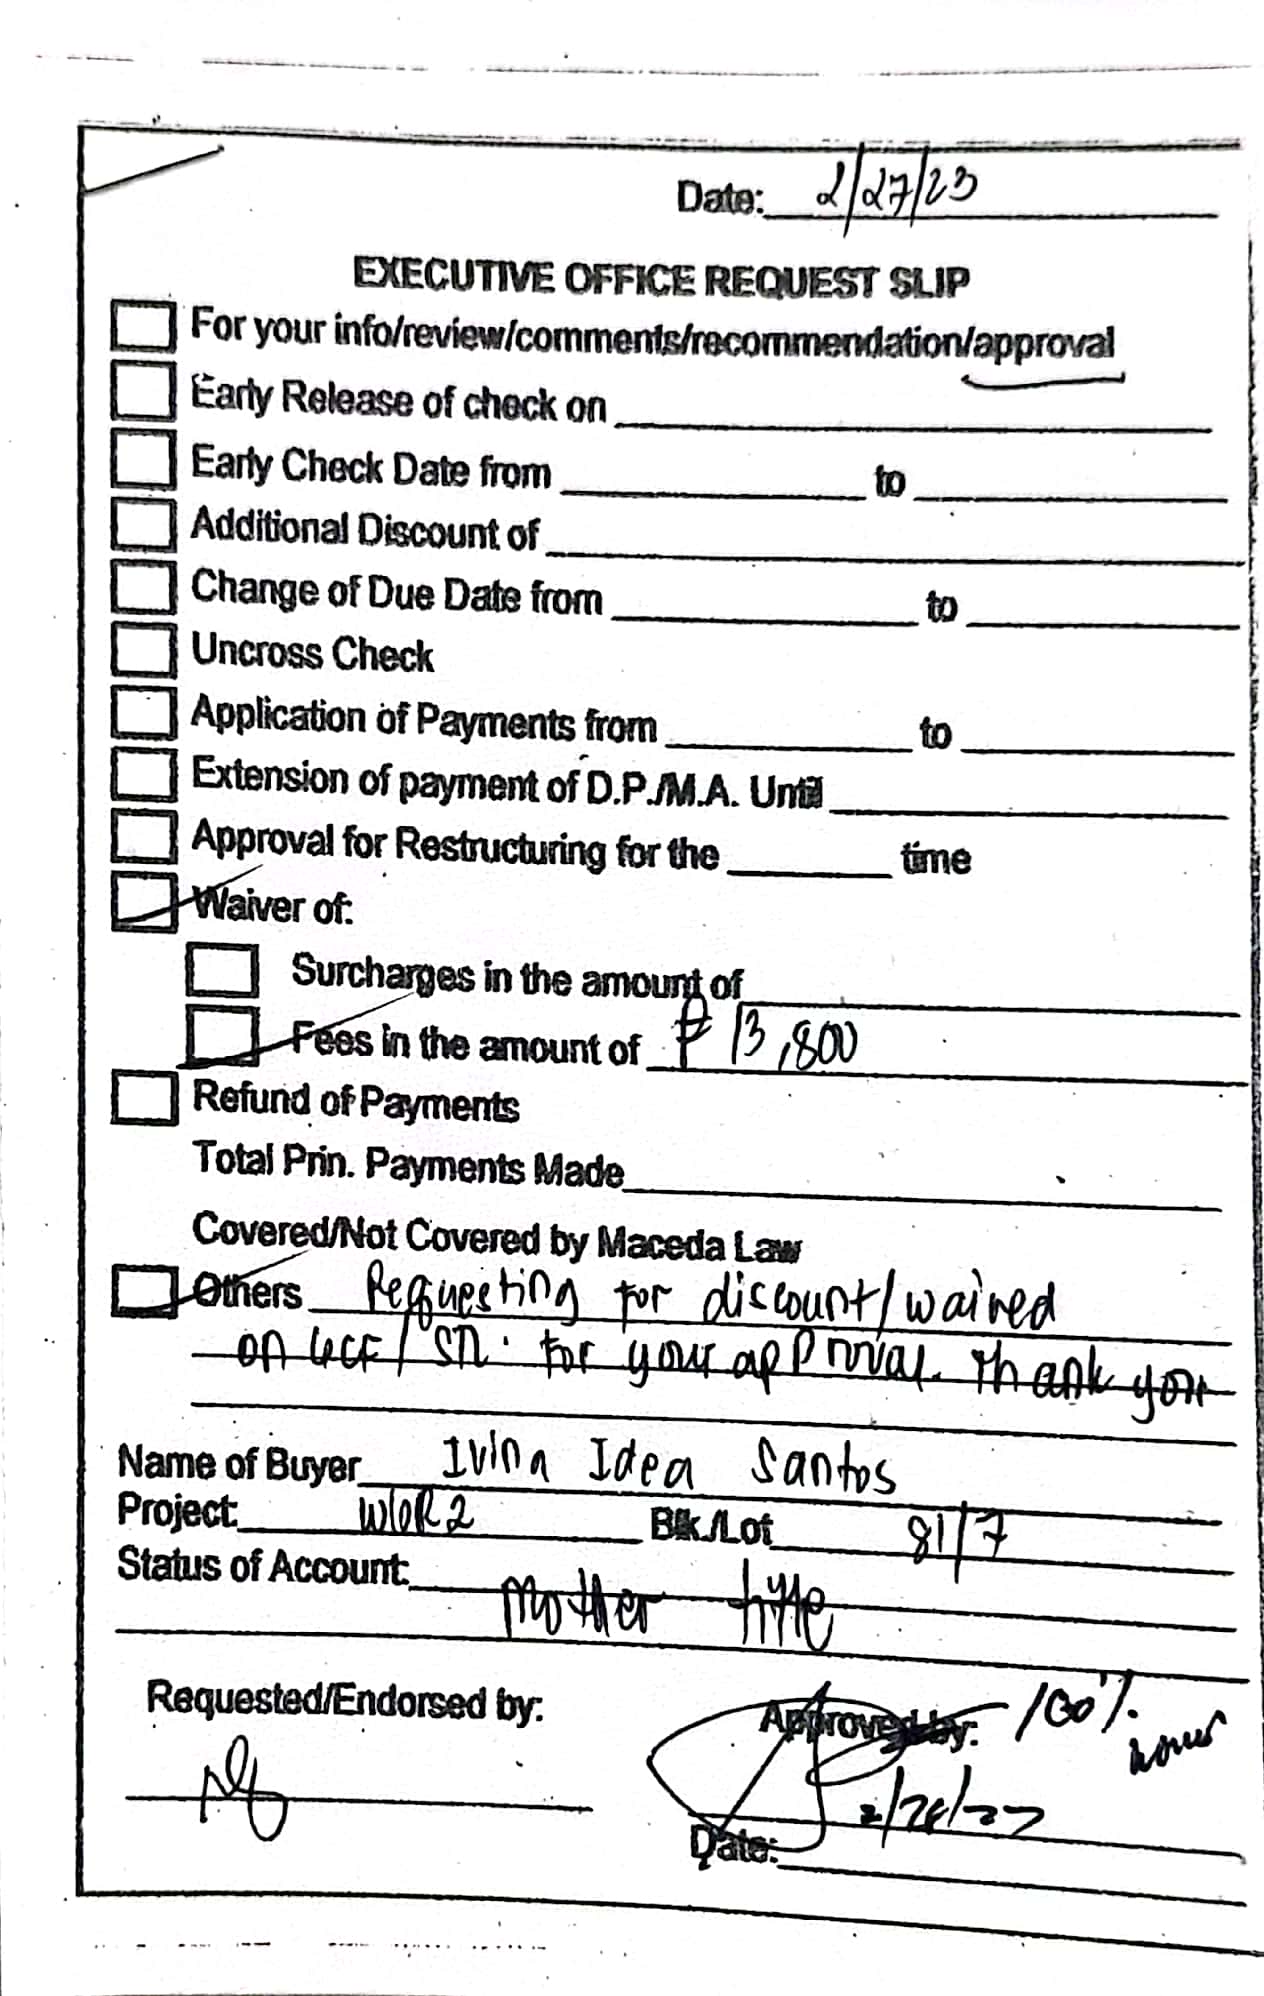 Date: 2/27/23
EXECUTIVE OFFICE REQUEST SLIP
For your info/review/comments/recommendation/approval
Early Release of check on
Early Check Date from to
Additional Discount of
Change of Due Date from to
Uncross Check
Application of Payments from to
Extension of payment of D.P./M.A. Until
Approval for Restructuring for the time
Waiver of:
Surcharges in the amount of
Fees in the amount of ₱ 13,800
Refund of Payments
Total Prin. Payments Made
Covered/Not Covered by Maceda Law
Others Requesting for discount/waived
on for your approval. Thank you
Name of Buyer Ivina Idea Santos
Project: WOR2 Blk./Lot 81/7
Status of Account: Mother title
Requested/Endorsed by:
Approved by: 100%
Date: